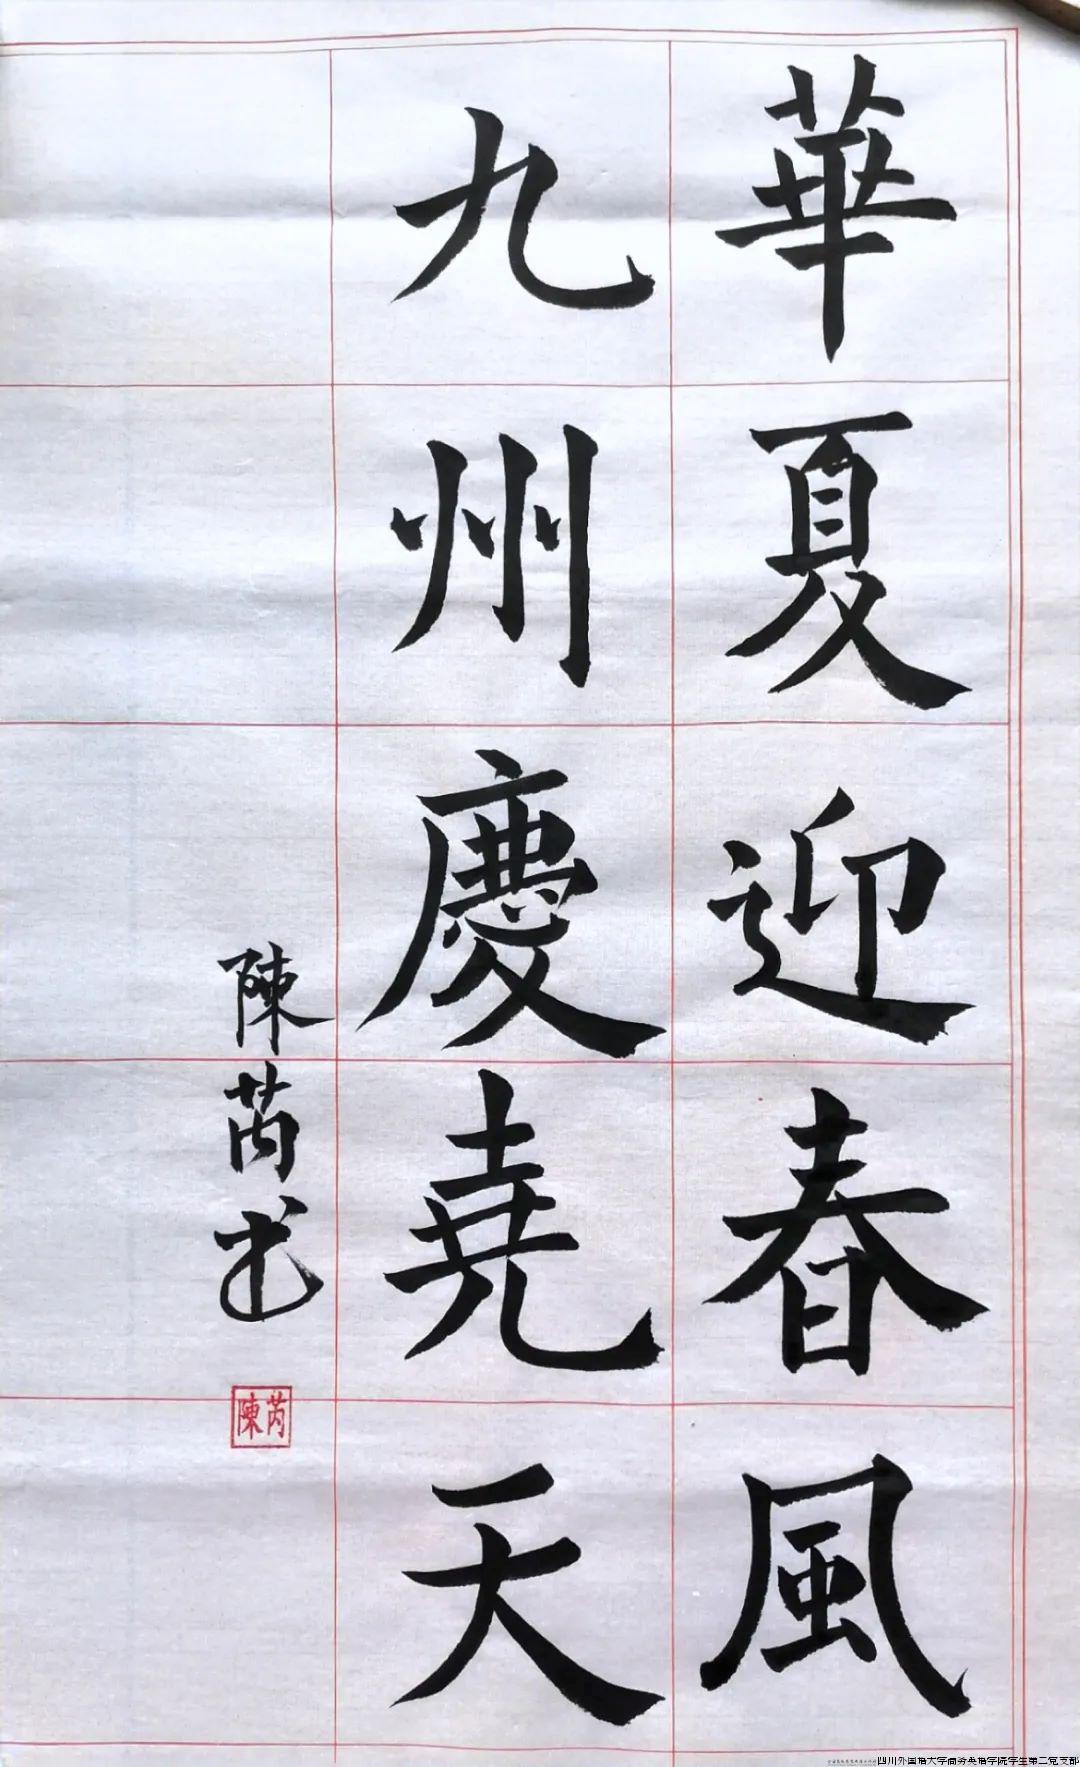 華夏迎春風
九州慶堯天
陳芮书
陳芮
四川外国语大学商务英语学院学生第二党支部